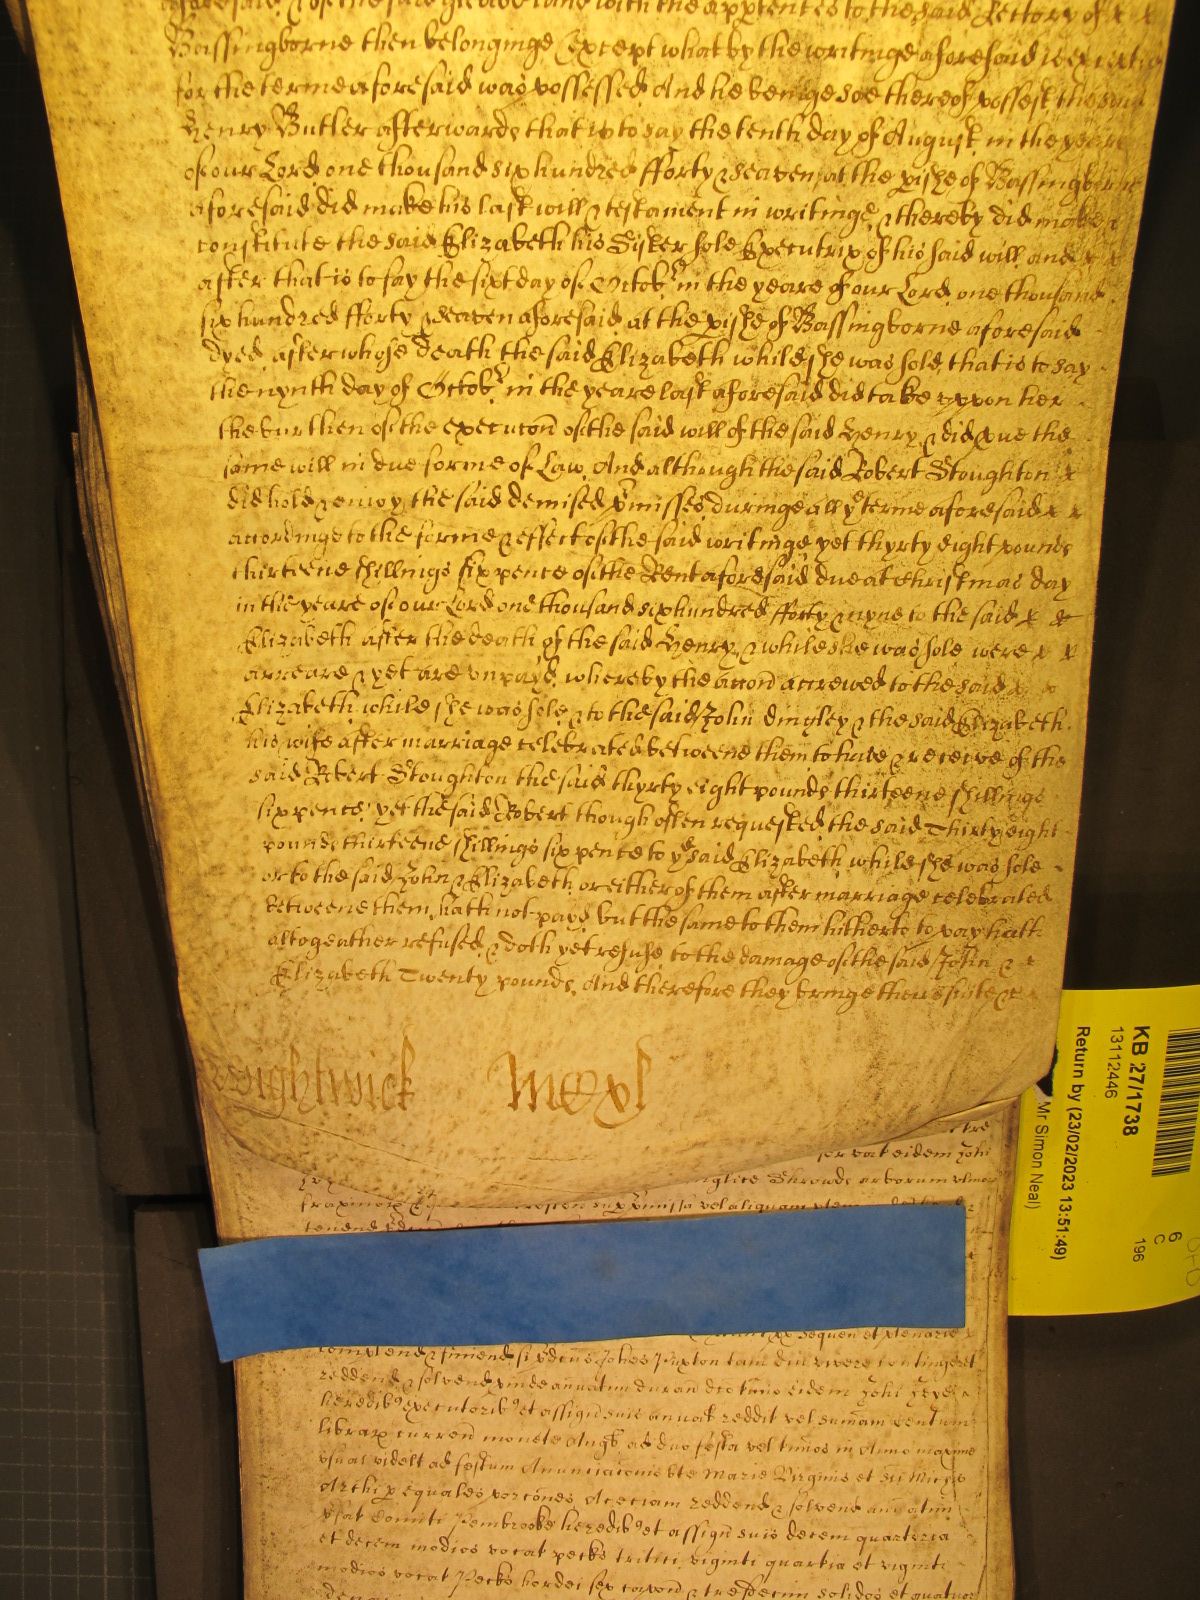 aforesaid & of the said gleabe land with the apptences to the said Rectory of x x
Bassingborne then belonginge Except what by the writinge aforesaid is excepted
for the terme aforesaid was possessed And he beinge soe thereof possest the said
Henry Butler afterwards that is to say the tenth day of August in the yeare
of our Lord one thousand six hundred fforty & seaven at the pishe of Bassingborne
aforesaid did make his last will & testament in writinge & thereby did make &
constitute the said Elizabeth his Sister sole Executrix of his said will and x x
after that is to say the sixt day of Octobr in the yeare of our Lord one thousand
six hundred fforty & seaven aforesaid at the pishe of Bassingborne aforesaid
dyed after whose death the said Elizabeth while she was sole that is to say
the nynth day of Octobr in the yeare last aforesaid did take uppon her
the burthen of the execucon of the said will of the said Henry & did pve the
same will in due forme of Law And although the said Robert Stoughton x
did hold & enioy the said demised pmisses duringe all ye terme aforesaid x x
accordinge to the forme & effect of the said writinge yet thyrty eight pounds
thirteene shillings six pence of the Rent aforesaid due at Christmas day
in the yeare of our Lord one thousand six hundred fforty & nyne to the said x &
Elizabeth after the death of the said Henry & while she was sole were x x
arreare & yet are unpayd whereby the accon accrewed to the said x
Elizabeth while she was sole & to the said John Dingley & the said Elizabeth
his wife after marriage celebrated betweene them to have & receive of the
said Robert Stoughton the said thyrty eight pounds thirteene shillings
six pence yet the said Robert though often requested the said Thirty eight
pounds thirteene shillings six pence to ye said Elizabeth while she was sole
or to the said John & Elizabeth or either of them after marriage celebrated
betweene them hath not payd but the same to them hitherto to pay hath
altogeather refused & doth yet refuse to the damage of the said John &
Elizabeth Twenty pounds And therefore they bringe their suite &c
Wightwick
servat eidem Johi
anglice Shrowds arborum ulmor
sequen et plenarie
complend & finiend si pdcus Johes Puxton tam diu vivere contingeret
reddend & solvend pinde annuatim duran dco tmio eidem Johi
heredib executorib et assign suis annual reddit vel summam centum
librar curren monete Angl ad duo festa vel tmios in Anno maxime
usual videlt ad festum Annunciaconis bte Marie Virginis et sci Michis
Archi p equales porcones Aceciam reddend & solvend annuatim
pfat Comiti Pembrooke heredib et assign suis decem quarteria
et decem modios vocat pecks tritici viginti quartia et viginti
modios vocat Pecks hordei sex capon & tresdecim solidos et quatuor
KB 27/1738
13112446
Return by (23/02/2023 13:51:49)
Mr Simon Neal)
6
C
196